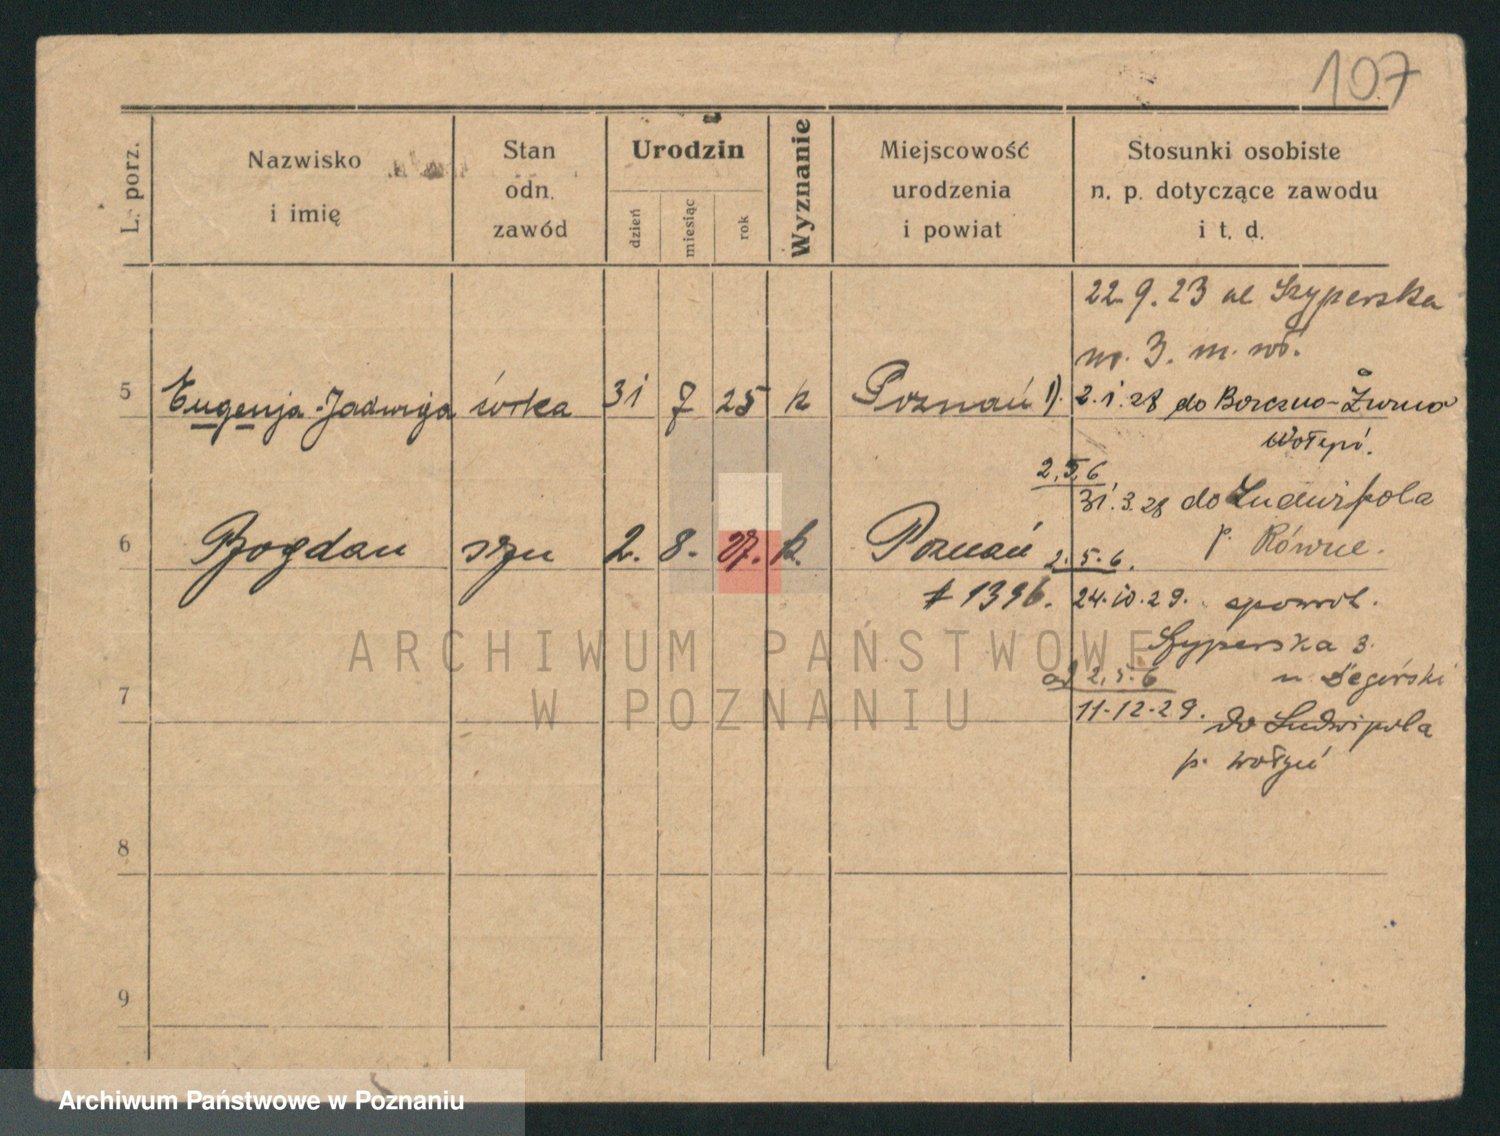 107
L. porz.
Nazwisko
i imię
Stan
odn.
zawód
Urodzin
dzień
miesiąc
rok
Wyznanie
Miejscowość
urodzenia
i powiat
Stosunki osobiste
n. p. dotyczące zawodu
i t. d.
22.9.23 ul Szyperska
nr. 3. m. wł.
5 Eugenja-Jadwiga córka 31 7 25 k Poznań 1). 2.1.28 do
2,5,6
31.3.28 do Ludwipola
p. Równe.
6 Bogdan syn 2. 8. 27. k. Poznań
2.5.6.
1396. 24.10.29. spowrot.
Szyperska 3.
ARCHIWUM PAŃSTWOWE
W POZNANIU
od 2,5.6
7
11-12-29. do Ludwipola
p. Wołyń
8
9
Archiwum Państwowe w Poznaniu